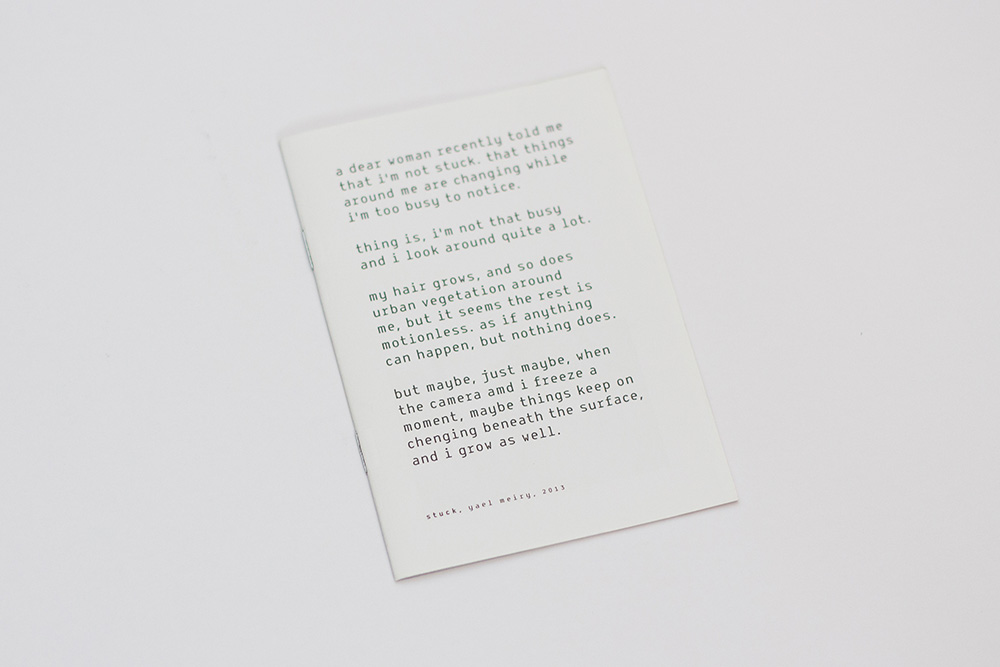 a dear woman recently told me
that i'm not stuck. that things
around me are changing while
i'm too busy to notice.
thing is, i'm not that busy
and i look around quite a lot.
my hair grows, and so does
urban vegetation around
me, but it seems the rest is
motionless. as if anything
can happen, but nothing does.
but maybe, just maybe, when
the camera amd i freeze a
moment, maybe things keep on
chenging beneath the surface,
and i grow as well.
stuck, yael meiry, 2013